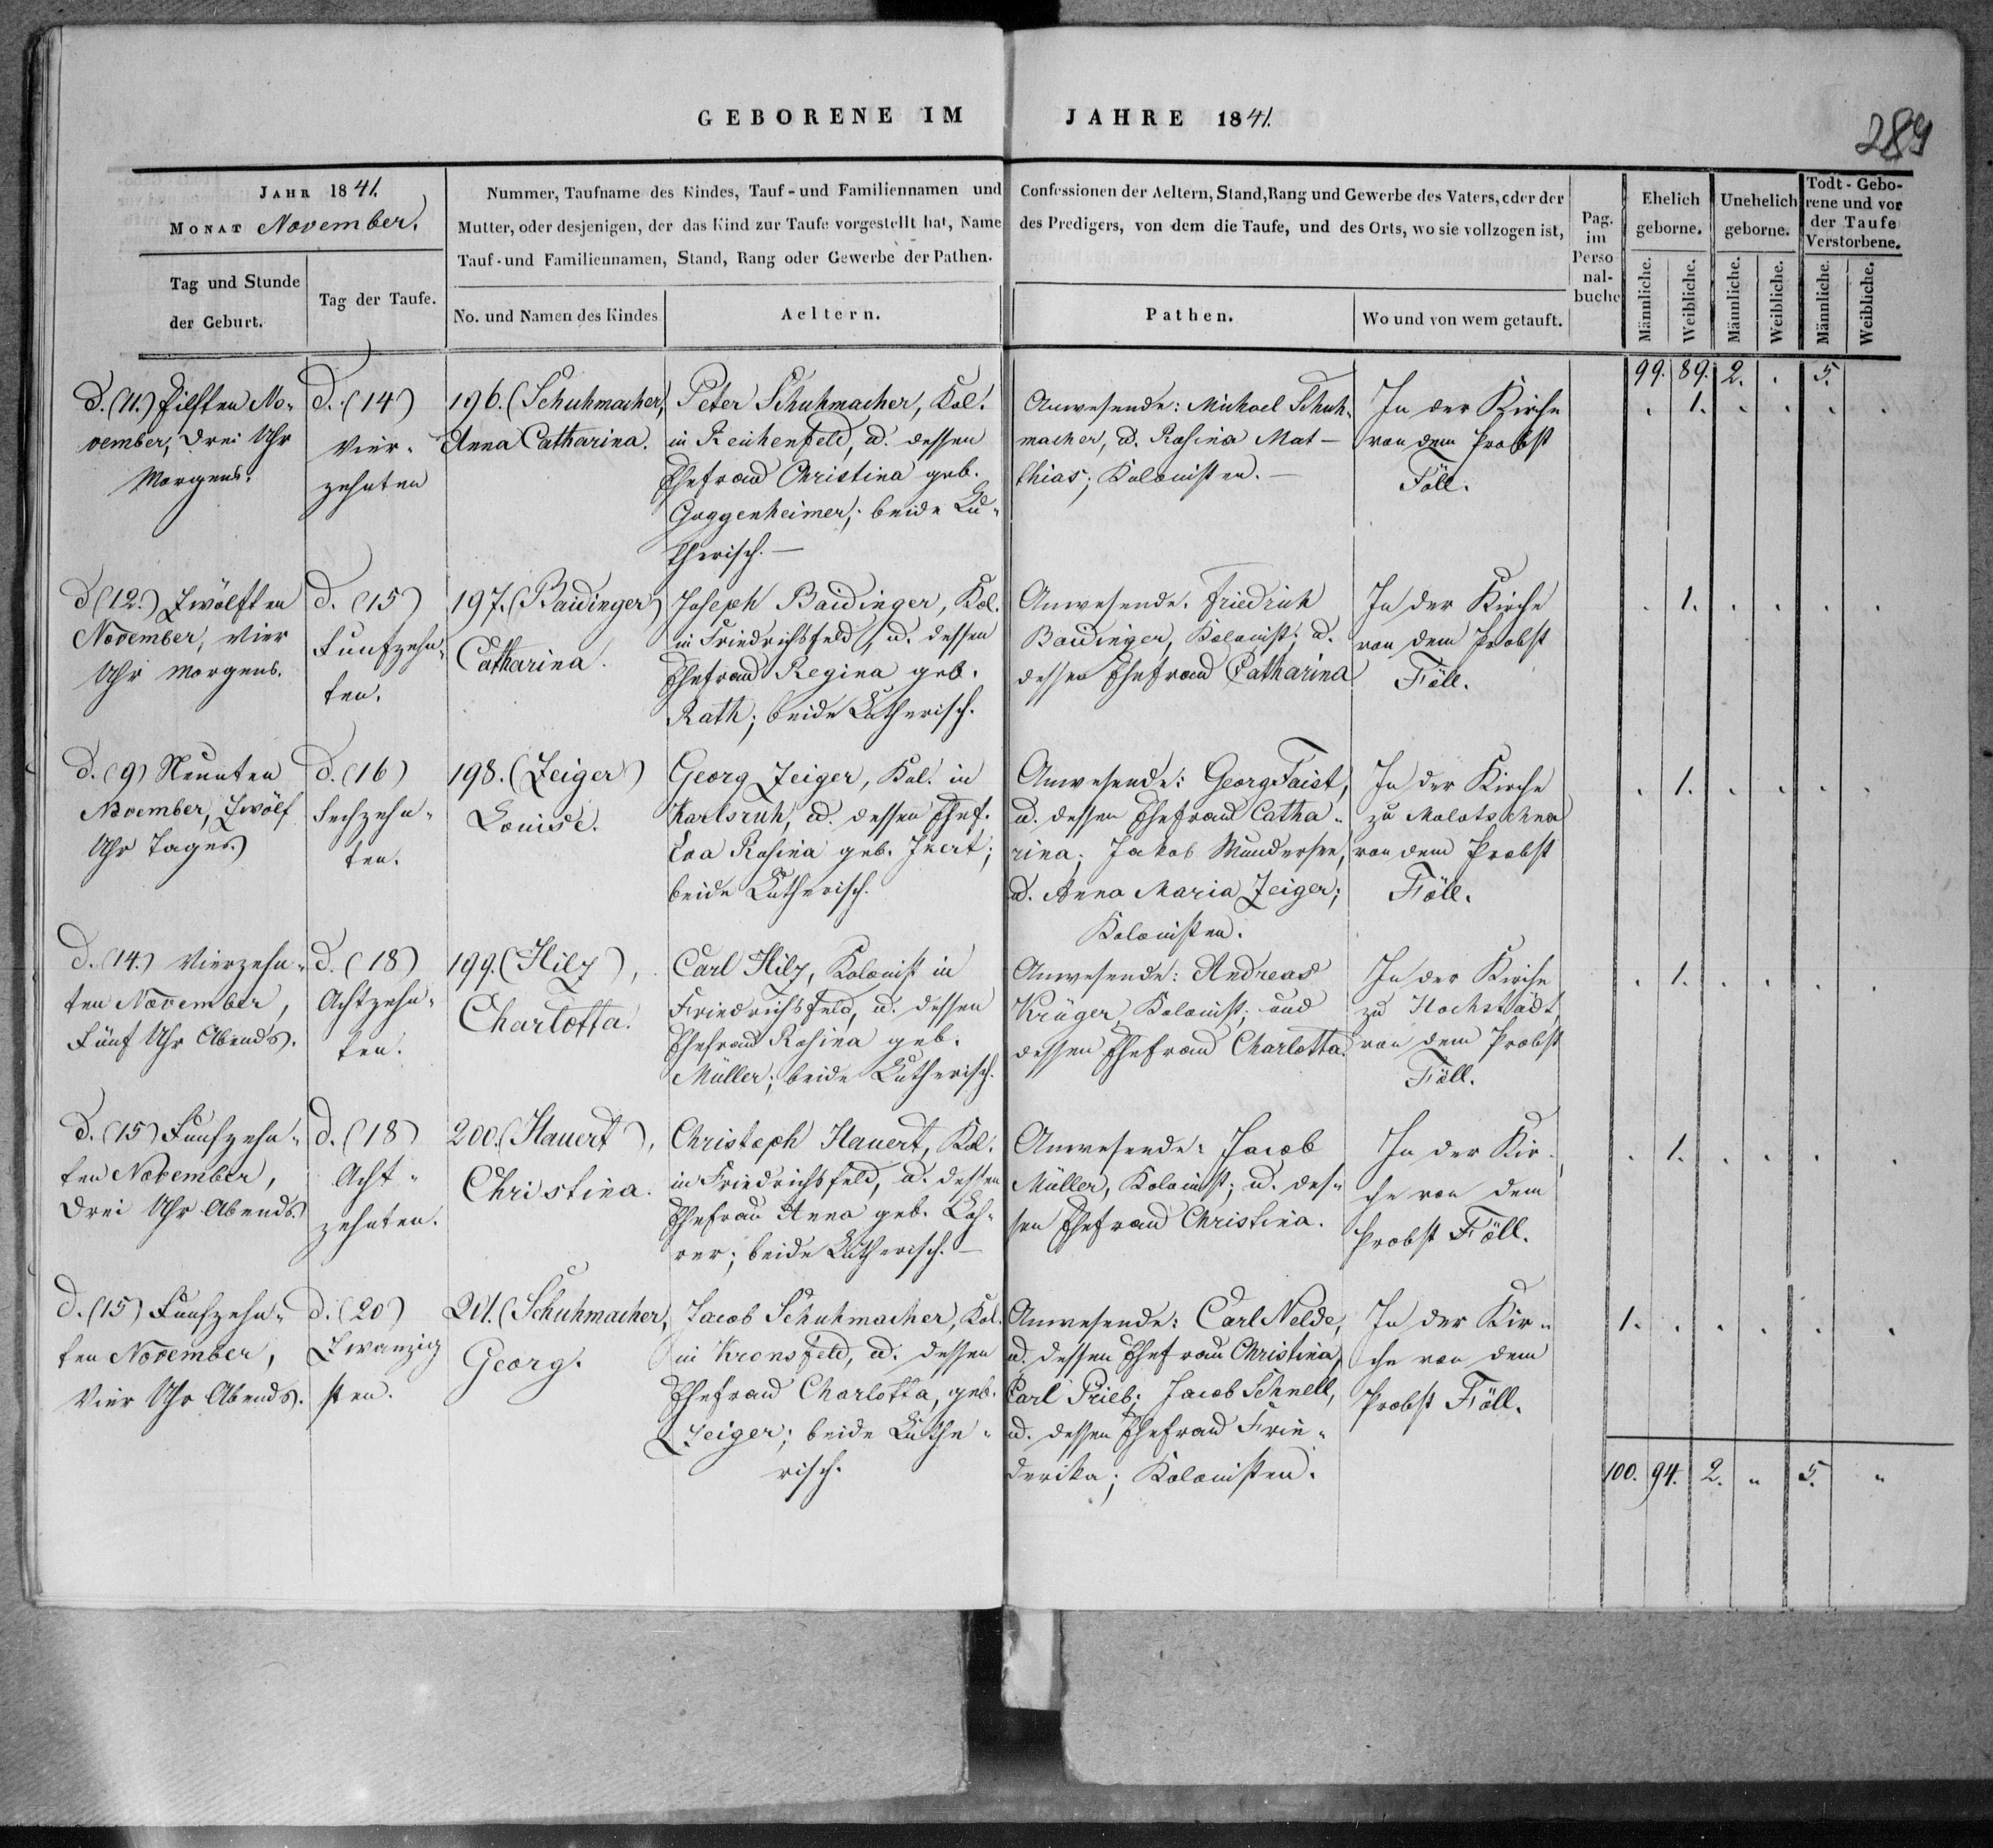 GEBORENE IM JAHRE 1841.
289
JAHR 1841.
MONAT November.
Tag und Stunde
der Geburt.
Tag der Taufe.
Nummer, Taufname des Kindes, Tauf- und Familiennamen und
Mutter, oder desjenigen, der das Kind zur Taufe vorgestellt hat, Name
Tauf- und Familiennamen, Stand, Rang oder Gewerbe der Pathen.
No. und Namen des Kindes
Aeltern.
Confessionen der Aeltern, Stand, Rang und Gewerbe des Vaters, oder der
des Predigers, von dem die Taufe, und des Orts, wo sie vollzogen ist,
Pathen.
Wo und von wem getauft.
Pag.
im
Perso
nal-
buche
Ehelich
geborne.
Unehelich
geborne.
Todt-Gebo-
rene und vor
der Taufe
Verstorbene.
Männliche.
Weibliche.
Männliche.
Weibliche.
Männliche.
Weibliche.
99. 89. 2. . 5.
d. (11.) Eilften No-
vember, drei Uhr
Morgens.
d. (14)
Vier-
zehnten
196. (Schuhmacher,)
Anna Catharina.
Peter Schuhmacher, Kol.
in Reichenfeld, u. dessen
Ehefrau Christina geb.
Guggenheimer; beide Lu-
therisch. —
Anwesende: Michael Schuh-
macher, u. Rosina Mat-
thias; Kolonisten. —
In der Kirche
von dem Probst
Föll.
. 1. . . . .
d (12.) Zwölften
November, vier
Uhr Morgens.
d. (15)
Funfzehn-
ten.
197. (Baidinger)
Catharina.
Joseph Baidinger, Kol.
in Friedrichsfeld, u. dessen
Ehefrau Regina geb.
Rath; beide Lutherisch.
Anwesende. Friedrich
Baidinger, Kolonist; u.
dessen Ehefrau Catharina
In der Kirche
von dem Probst
Föll.
. 1. . . . .
d. (9) Neunten
November, Zwölf
Uhr Tages.
d. (16)
Sechzehn-
ten.
198. (Zeiger)
Louise.
Georg Zeiger, Kol. in
Karlsruh, u. dessen Ehef.
Eva Rosina geb.
beide Lutherisch.
Anwesende: Georg Faist,
u. dessen Ehefrau Catha-
rina; Jakob
u. Anna Maria Zeiger;
Kolonisten.
In der Kirche
zu Molotschna
von dem Probst
Föll.
. 1. . . . .
d. (14.) Vierzehn-
ten November,
Fünf Uhr Abends.
d. (18)
Achtzehn-
ten.
199. (Hilz),
Charlotta.
Carl Hilz, Kolonist in
Friedrichsfeld, u. dessen
Ehefrau Rosina geb.
Müller; beide Lutherisch.
Anwesende: Andreas
Krüger, Kolonist; und
dessen Ehefrau Charlotta.
In der Kirche
zu Hochstädt,
von dem Probst
Föll.
. 1. . . . .
d. (15) Funfzehn-
ten November,
Drei Uhr Abends.
d. (18)
Acht-
zehnten.
200. (Hauert),
Christina.
Christoph Hauert, Kol.
in Friedrichsfeld, u. dessen
Ehefrau Anna geb. Loh-
rer; beide Lutherisch. —
Anwesende: Jacob
Müller, Kolonist; u. des-
sen Ehefrau Christina.
In der Kir-
che von dem
Probst Föll.
. 1. . . . .
d. (15) Funfzehn-
ten November,
Vier Uhr Abends.
d. (20)
Zwanzig
sten.
201. (Schuhmacher,
Georg.
Jacob Schuhmacher, Kol.
in Kronsfeld, u. dessen
Ehefrau Charlotta, geb.
Zeiger; beide Luthe-
risch.
Anwesende: Carl Nelde,
u. dessen Ehefrau Christina,
Carl Prieb; Jacob Schnell,
u. dessen Ehefrau Frie-
derika; Kolonisten.
In der Kir-
che von dem
Probst Föll.
1. . . . . .
100. 94. 2. " 5. "